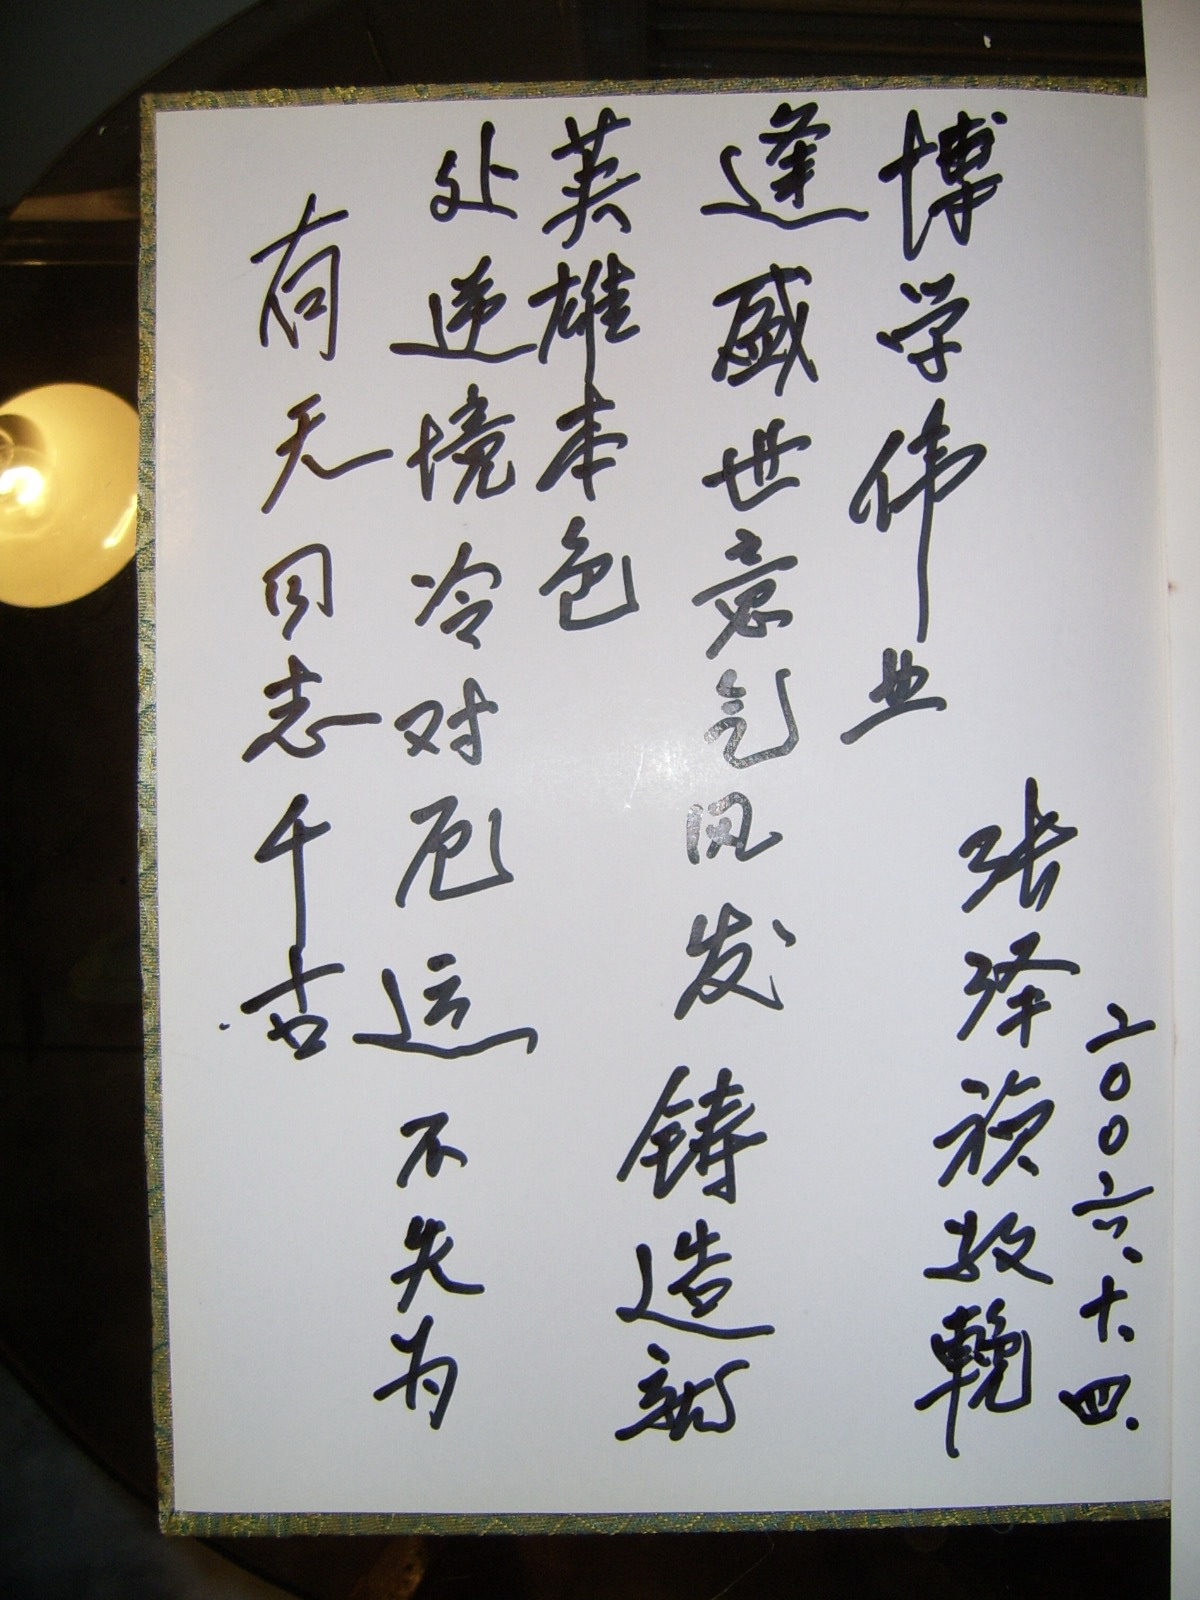 天同志千古
处逆境冷对厄运不失为
英雄本色
逢盛世意气风发铸造新
博学伟业
张泽祯敬輓
二00六.十.四.